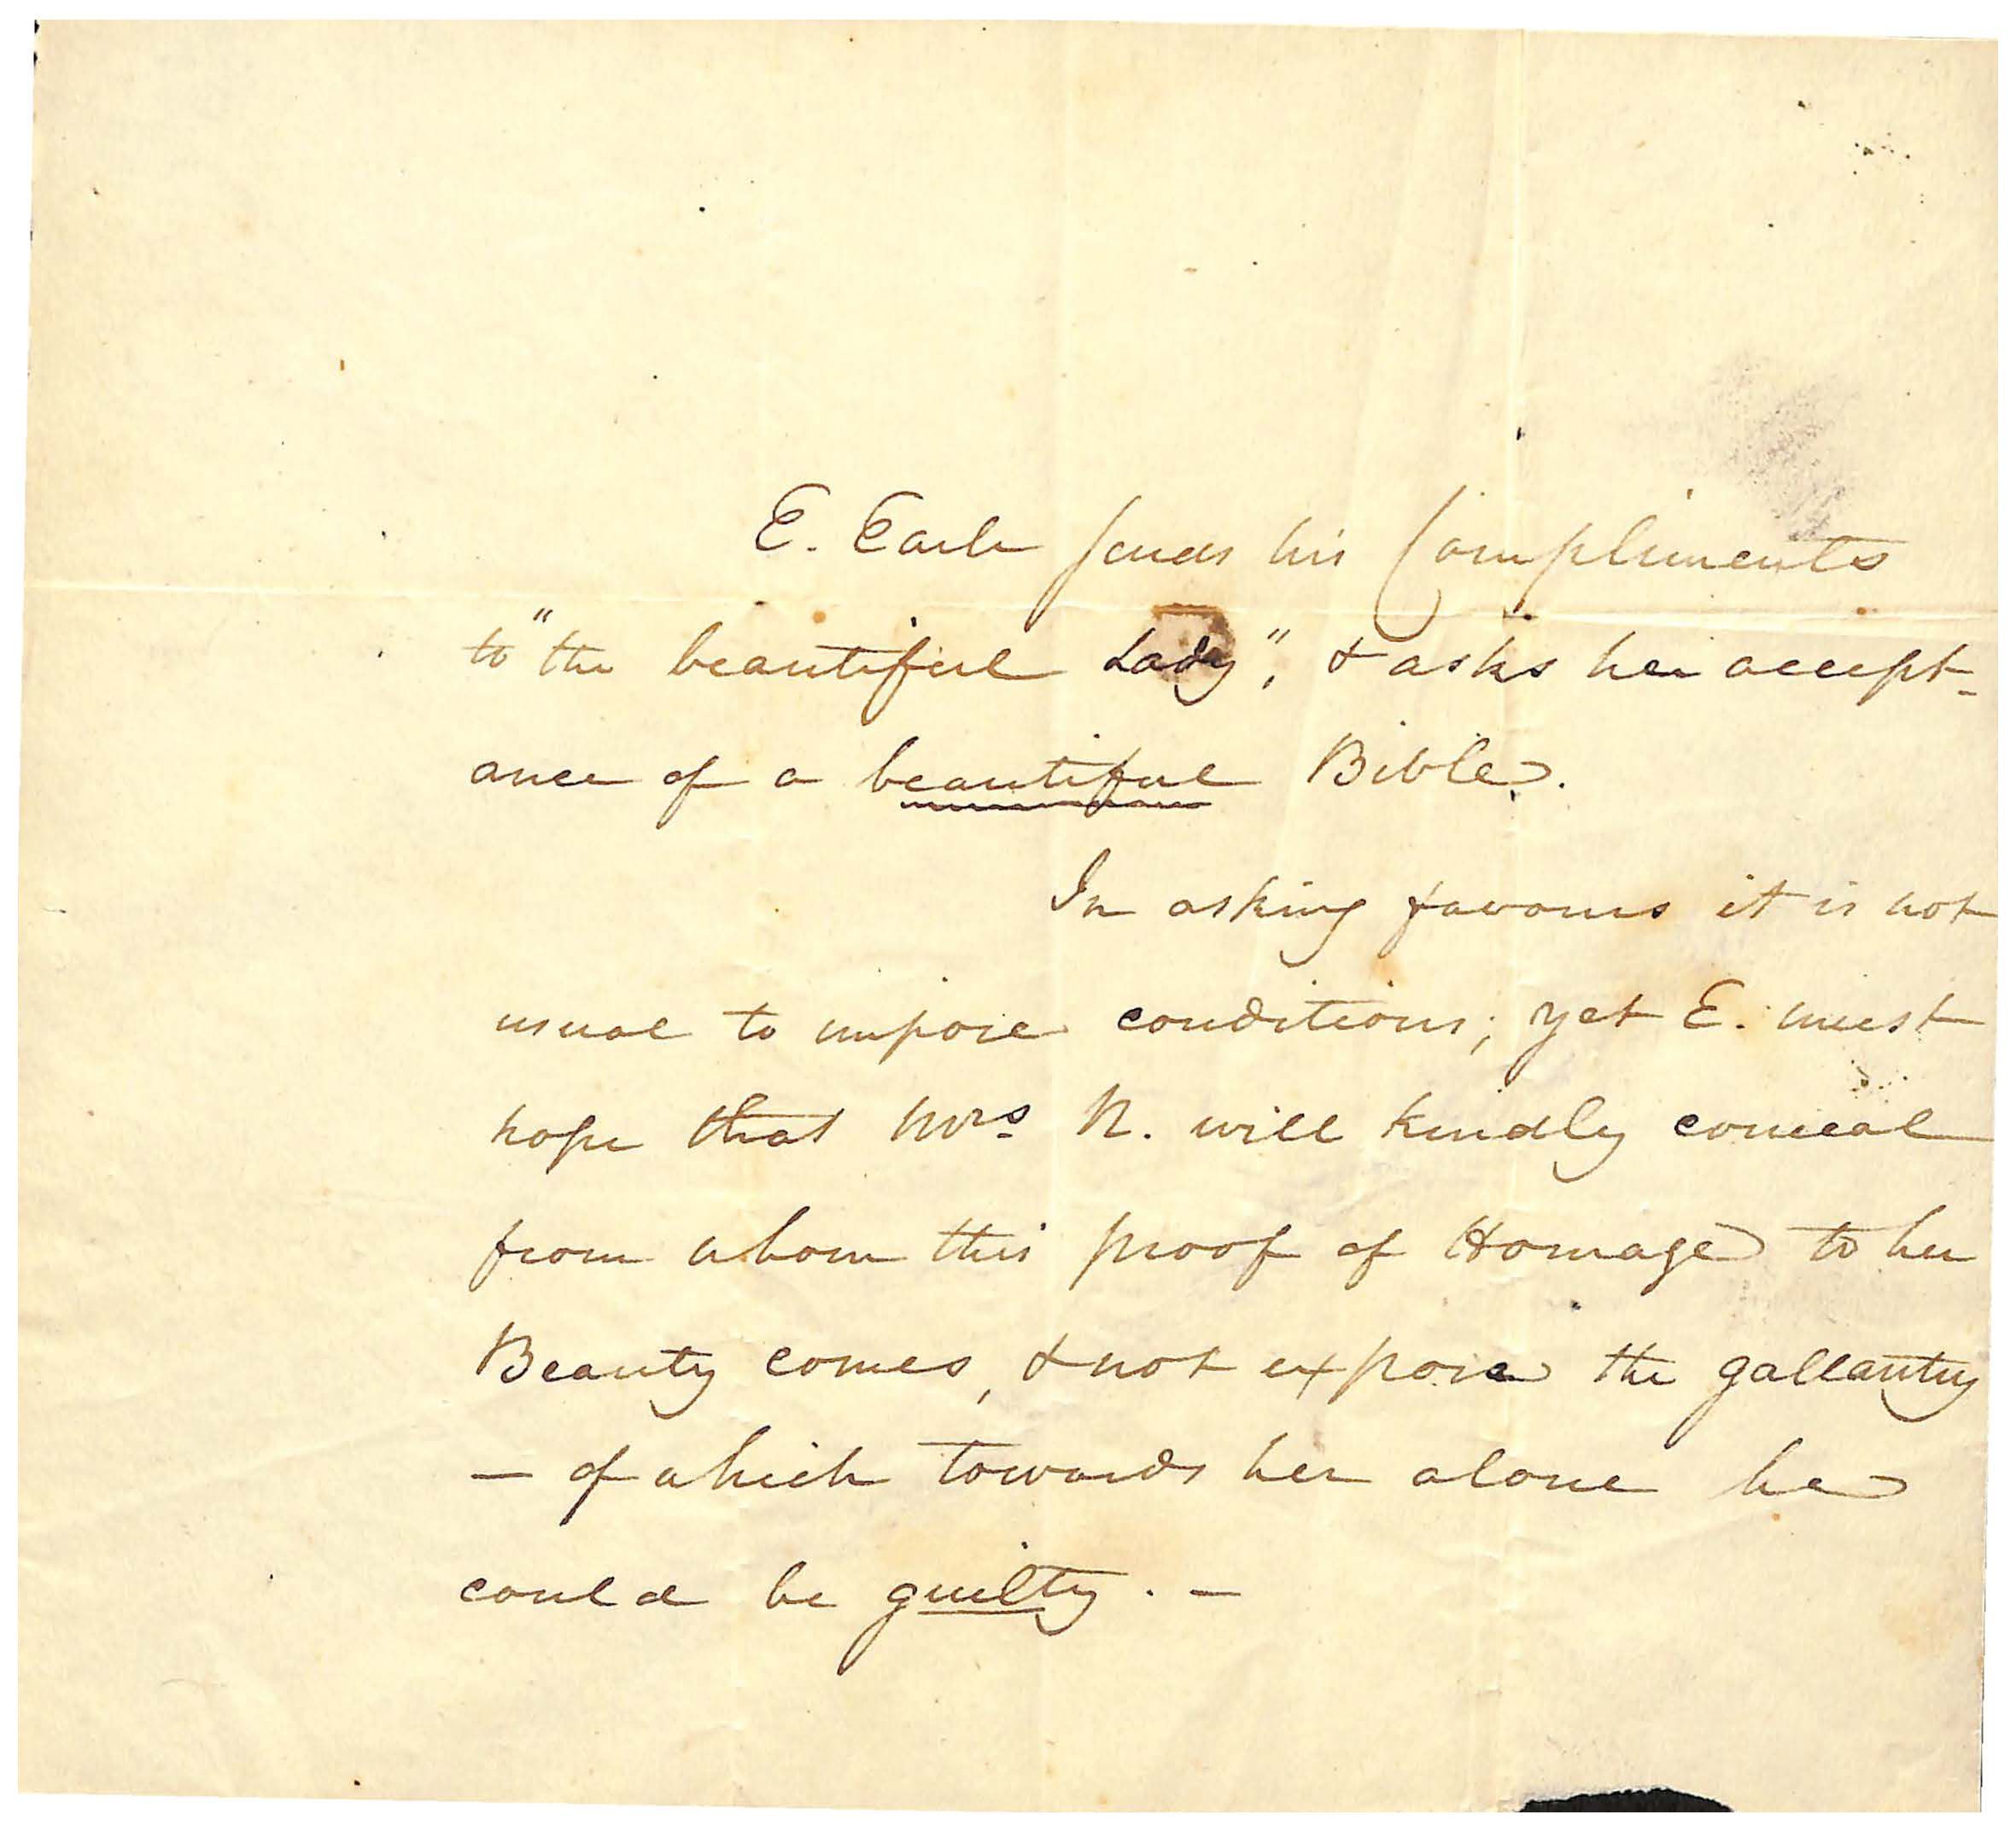 E. Earle sends his Compliments
to "the beautiful Lady", & asks her accept-
ance of a beautiful Bible.
In asking favours it is not
usual to impose conditions; yet E. must
hope that Mrs N. will kindly conceal
from whom this proof of Homage to her
Beauty comes, & not expose the gallantry
— of which towards her alone he
could be guilty. —